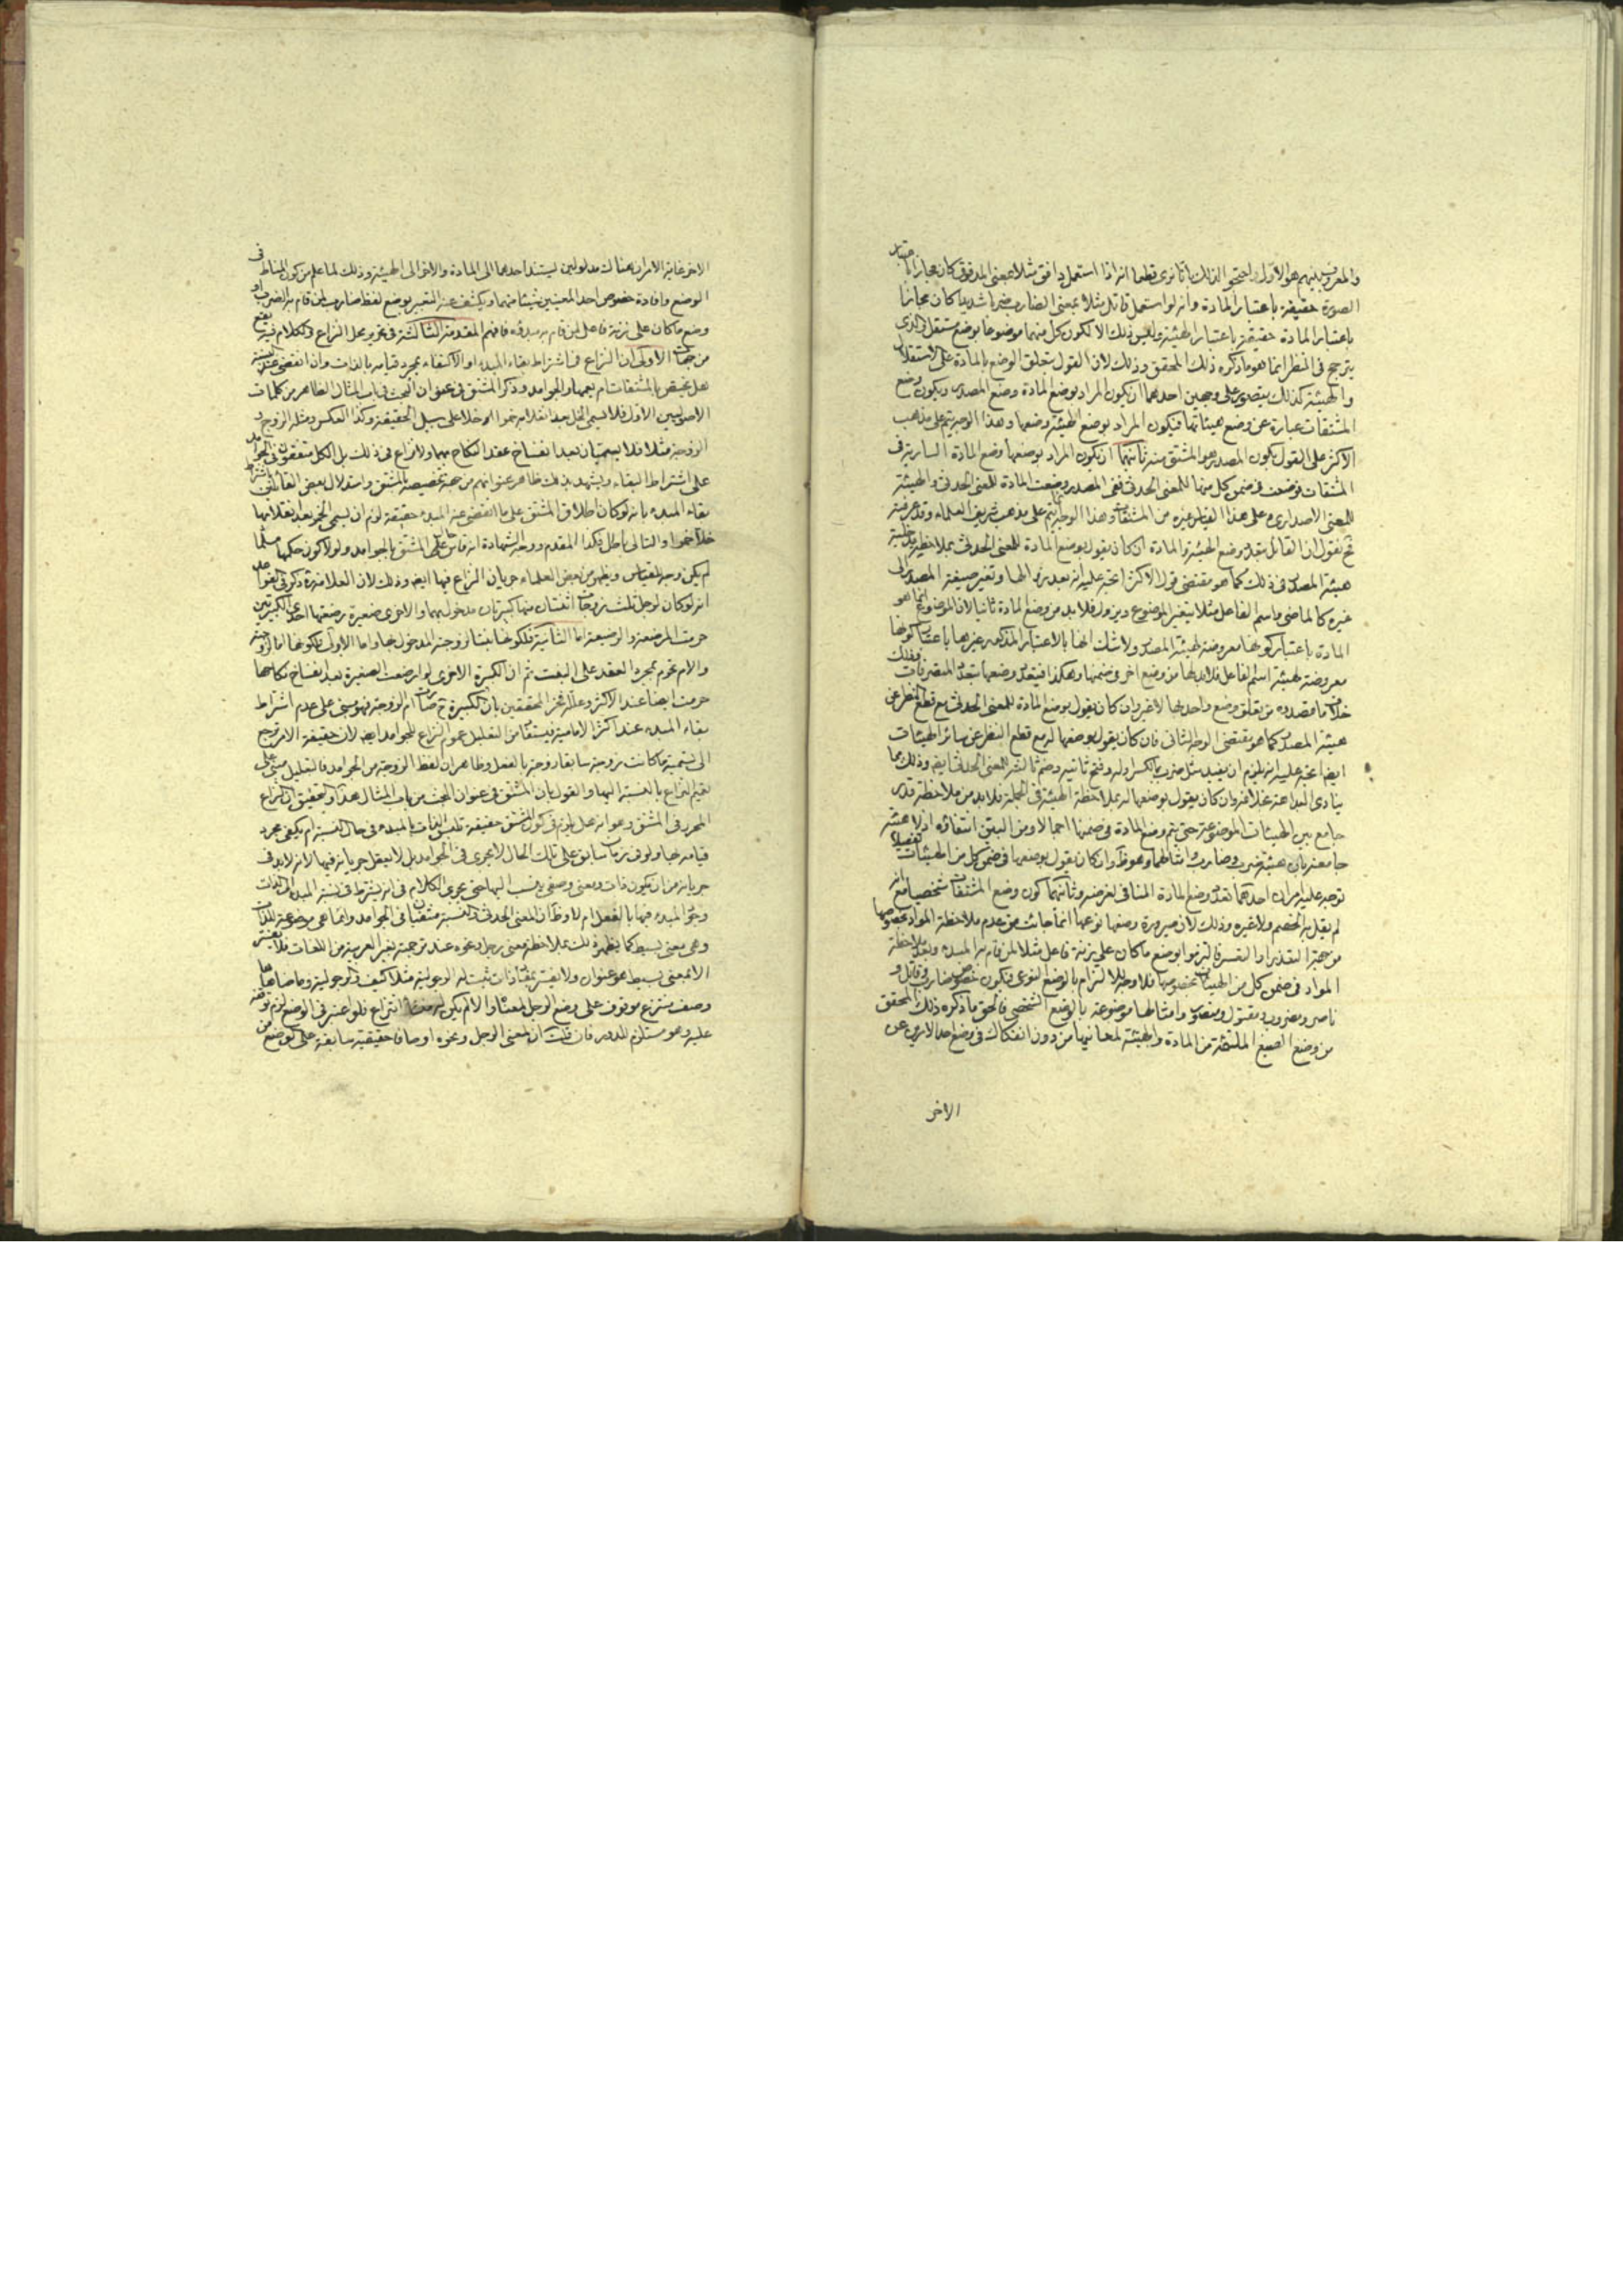 والمعروف بينهم هو الاول واحتجوا لذلك بانا نرى قطعا انه اذا استعمل دافق مثلا بمعنى المدفوق كان مجازا باعتبار
الصورة حقيقة باعتبار المادة وانه لو استعمل قاتل مثلا بمعنى الضارب ضربا شديدا كان مجازا
باعتبار المادة حقيقة باعتبار الهيئة وليس ذلك الا لكون كل منهما موضوعا بوضع مستقل والذي
يترجح في النظر انما هو ما ذكره ذلك المحقق وذلك لان القول بتعلق الوضع بالمادة على الاستقلال
والهيئة كذلك يتصور على وجهين احدهما ان يكون المراد بوضع المادة وضع المصدر ويكون وضع
المشتقات عبارة عن وضع هيئاتها فيكون المراد بوضع الهيئة وضعها وهذا الوجه يتم على مذهب
الاكثر على القول بكون المصدر هو المشتق منه وثانيهما ان يكون المراد بوضعها وضع المادة السارية في
المشتقات فوضعت في ضمن كل منها للمعنى الحدثي ففي المصدر وضعت المادة للمعنى الحدثي والهيئة
للمعنى الاصداري وعلى هذا القياس غيره من المشتقات وهذا الوجه انما يتم على مذهب شريف العلماء وقد عرفته
ثم نقول ان القائل بتعدد وضع الهيئة والمادة ان كان يقول بوضع المادة للمعنى الحدثي بملاحظة
هيئة المصدر في ذلك كما هو مقتضى قول الاكثر اتجه عليه انه بعد زوالها وتغير صيغة المصدر الى
غيره كالماضي واسم الفاعل مثلا يتغير الموضوع ويزول فلا بد من وضع المادة ثانيا لان الموضوع انما هو
المادة باعتبار كونها معروضة لهيئة المصدر ولا شك انها بالاعتبار المذكور غيرها باعتبار كونها
معروضة لهيئة اسم الفاعل فلا بد لها من وضع اخر في ضمنها وهكذا فيتعدد وضعها بتعدد المتصرفات وذلك
خلاف ما قصدوه من تعلق وضع واحد بها لا غير وان كان يقول بوضع المادة للمعنى الحدثي مع قطع النظر عن
هيئة المصدر كما هو مقتضى الوجه الثاني فان كان يقول بوضعها له مع قطع النظر عن سائر الهيئات
ايضا اتجه عليه انه يلزم ان يفيد مثل ضرب بالكسر اوله وفتح ثانيه وضم ثالثه المعنى الحدثي ايضا وذلك مما
ينادي البداهة بخلافه وان كان يقول بوضعها له بملاحظة الهيئة في الجملة فلا بد من ملاحظة قدر
جامع بين الهيئات الموضوعة حتى يتم وضع المادة في ضمنها اجمالا ومن البين انتفاؤه اذ لا هيئة
جامعة بين هيئة ضرب وضارب وامثالهما وهو ظ وان كان يقول بوضعها في ضمن كل من الهيئات تفصيلا
توجه عليه امران احدهما تعدد وضع المادة المنافي لغرضه وثانيهما كون وضع المشتقات شخصيا مع انه
لم يقل به الخصم ولا غيره وذلك لان صيرورة وضعها نوعيا انما جائت من عدم ملاحظة المواد بخصوصها
من جهة التعذر او التعسر فالتزموا بوضع ما كان على زنة فاعل مثلا لمن قام به المبدء وبعد ملاحظة
المواد في ضمن كل من الهيئات بخصوصها فلا وجه للالتزام بالوضع النوعي فيكون خصوص ضارب وقاتل و
ناصر ومضروب ومقتول ومنصور وامثالها موضوعة بالوضع الشخصي فالحق ما ذكره ذلك المحقق
من وضع الصيغ الملتئمة من المادة والهيئة لمعانيها من دون انفكاك في وضع احد الامرين عن
الاخر
الاخر غاية الامر ان هناك مدلولين يستند احدهما الى المادة والاخر الى الهيئة وذلك لما علم من كون المناط في
الوضع وافادة خصوص احد المعنيين شيئا منهما ويكشف عنه التعبير بوضع لفظ ضارب لمن قام به الضرب او
وضع ما كان على زنة فاعل لمن قام به مبدؤه فافهم المقدمة الثالثة في تحرير محل النزاع والكلام فيه يقع
من جهات الاولى ان النزاع في اشتراط بقاء المبدء او الاكتفاء بمجرد قيامه بالذات وان انقضى عند النسبة
هل يختص بالمشتقات ام يعمها والجوامد وذكر المشتق في عنوان البحث من باب المثال الظاهر من كلمات
الاصوليين الاول فلا يسمى الخل بعد انقلابه خمرا خلا على سبيل الحقيقة وكذا العكس ومثله الزوج و
الزوجة مثلا فلا يسميان بعد انفساخ عقد النكاح بهما ولا نزاع في ذلك بل الكل متفقون في الجوامد
على اشتراط البقاء ويشهد بذلك ظاهر عنوانهم من جهة تخصيصه بالمشتق واستدلال بعض القائلين باشتراط
بقاء المبدء بانه لو كان اطلاق المشتق على ما انقضى عنه المبدء حقيقة لزم ان يسمى الخمر بعد انقلابها
خلا خمرا والتالي باطل فكذا المقدم ووجه الشهادة انه قاس حال المشتق بالجوامد ولولا كون حكمها مسلما
لم يكن وجه للقياس ويظهر من بعض العلماء جريان النزاع فيها ايضا وذلك لان العلامة ره ذكر في القواعد
انه لو كان لرجل ثلث زوجات اثنتان منها كبيرتان مدخول بهما والاخرى صغيرة رضعتها احدى الكبيرتين
حرمت المرضعة والرضيعة اما الثانية فلكونها بنتا لزوجته المدخول بها واما الاولى فلكونها اما لزوجته
والام تحرم بمجرد العقد على البنت ثم ان الكبيرة الاخرى لو ارضعت الصغيرة بعد انفساخ نكاحها
حرمت ايضا عند الاكثر وعلله فخر المحققين بان الكبيرة ح صارت ام الزوجة فهو مبني على عدم اشتراط
بقاء المبدء عند اكثر الامامية فيستفاد من التعليل عموم النزاع للجوامد ايضا لان حقيقة الامر ترجع
الى تسمية ما كانت زوجة سابقا زوجة بالفعل وظاهر ان لفظ الزوجة من الجوامد فالتعليل مبني على
تعميم النزاع بالنسبة اليها والقول بان المشتق في عنوان البحث من باب المثال هذا والتحقيق ان النزاع
المحرر في المشتق وهو انه هل يلزم في كون المشتق حقيقة تلبس الذات بالمبدء في حال النسبة ام يكفي مجرد
قيامه بها ولو في زمان سابق على تلك الحال لا يجري في الجوامد بل لا يعقل جريانه فيها لانه لا بد في
جريانه من ان يكون ذات ومعنى وصفي ينسب اليها حتى يجري الكلام في انه يشترط في نسبة المبدء الى الذات
وجود المبدء فيها بالفعل ام لا وظ ان المعنى الحدثي والنسبة منتفيان في الجوامد وانما هي موضوعة للذات
وهي معنى بسيط كما يظهر ذلك بملاحظة معنى رجل ونحوه عند ترجمته بغير العربية من اللغات فلا يفسر
الا بمعنى بسيط هو عنوان ولا يفسر بمفاد ذات ثبت له الرجولية مثلا كيف والرجولية وما ضاهاها
وصف منتزع موقوف على وضع الرجل لمعناه والا لم يكن له منشأ انتزاع فلو اعتبر في الوضع لزم توقفه
عليه وهو مستلزم للدور فان قلت ان لمعنى الرجل ونحوه اوصافا حقيقية سابقة على الوضع من